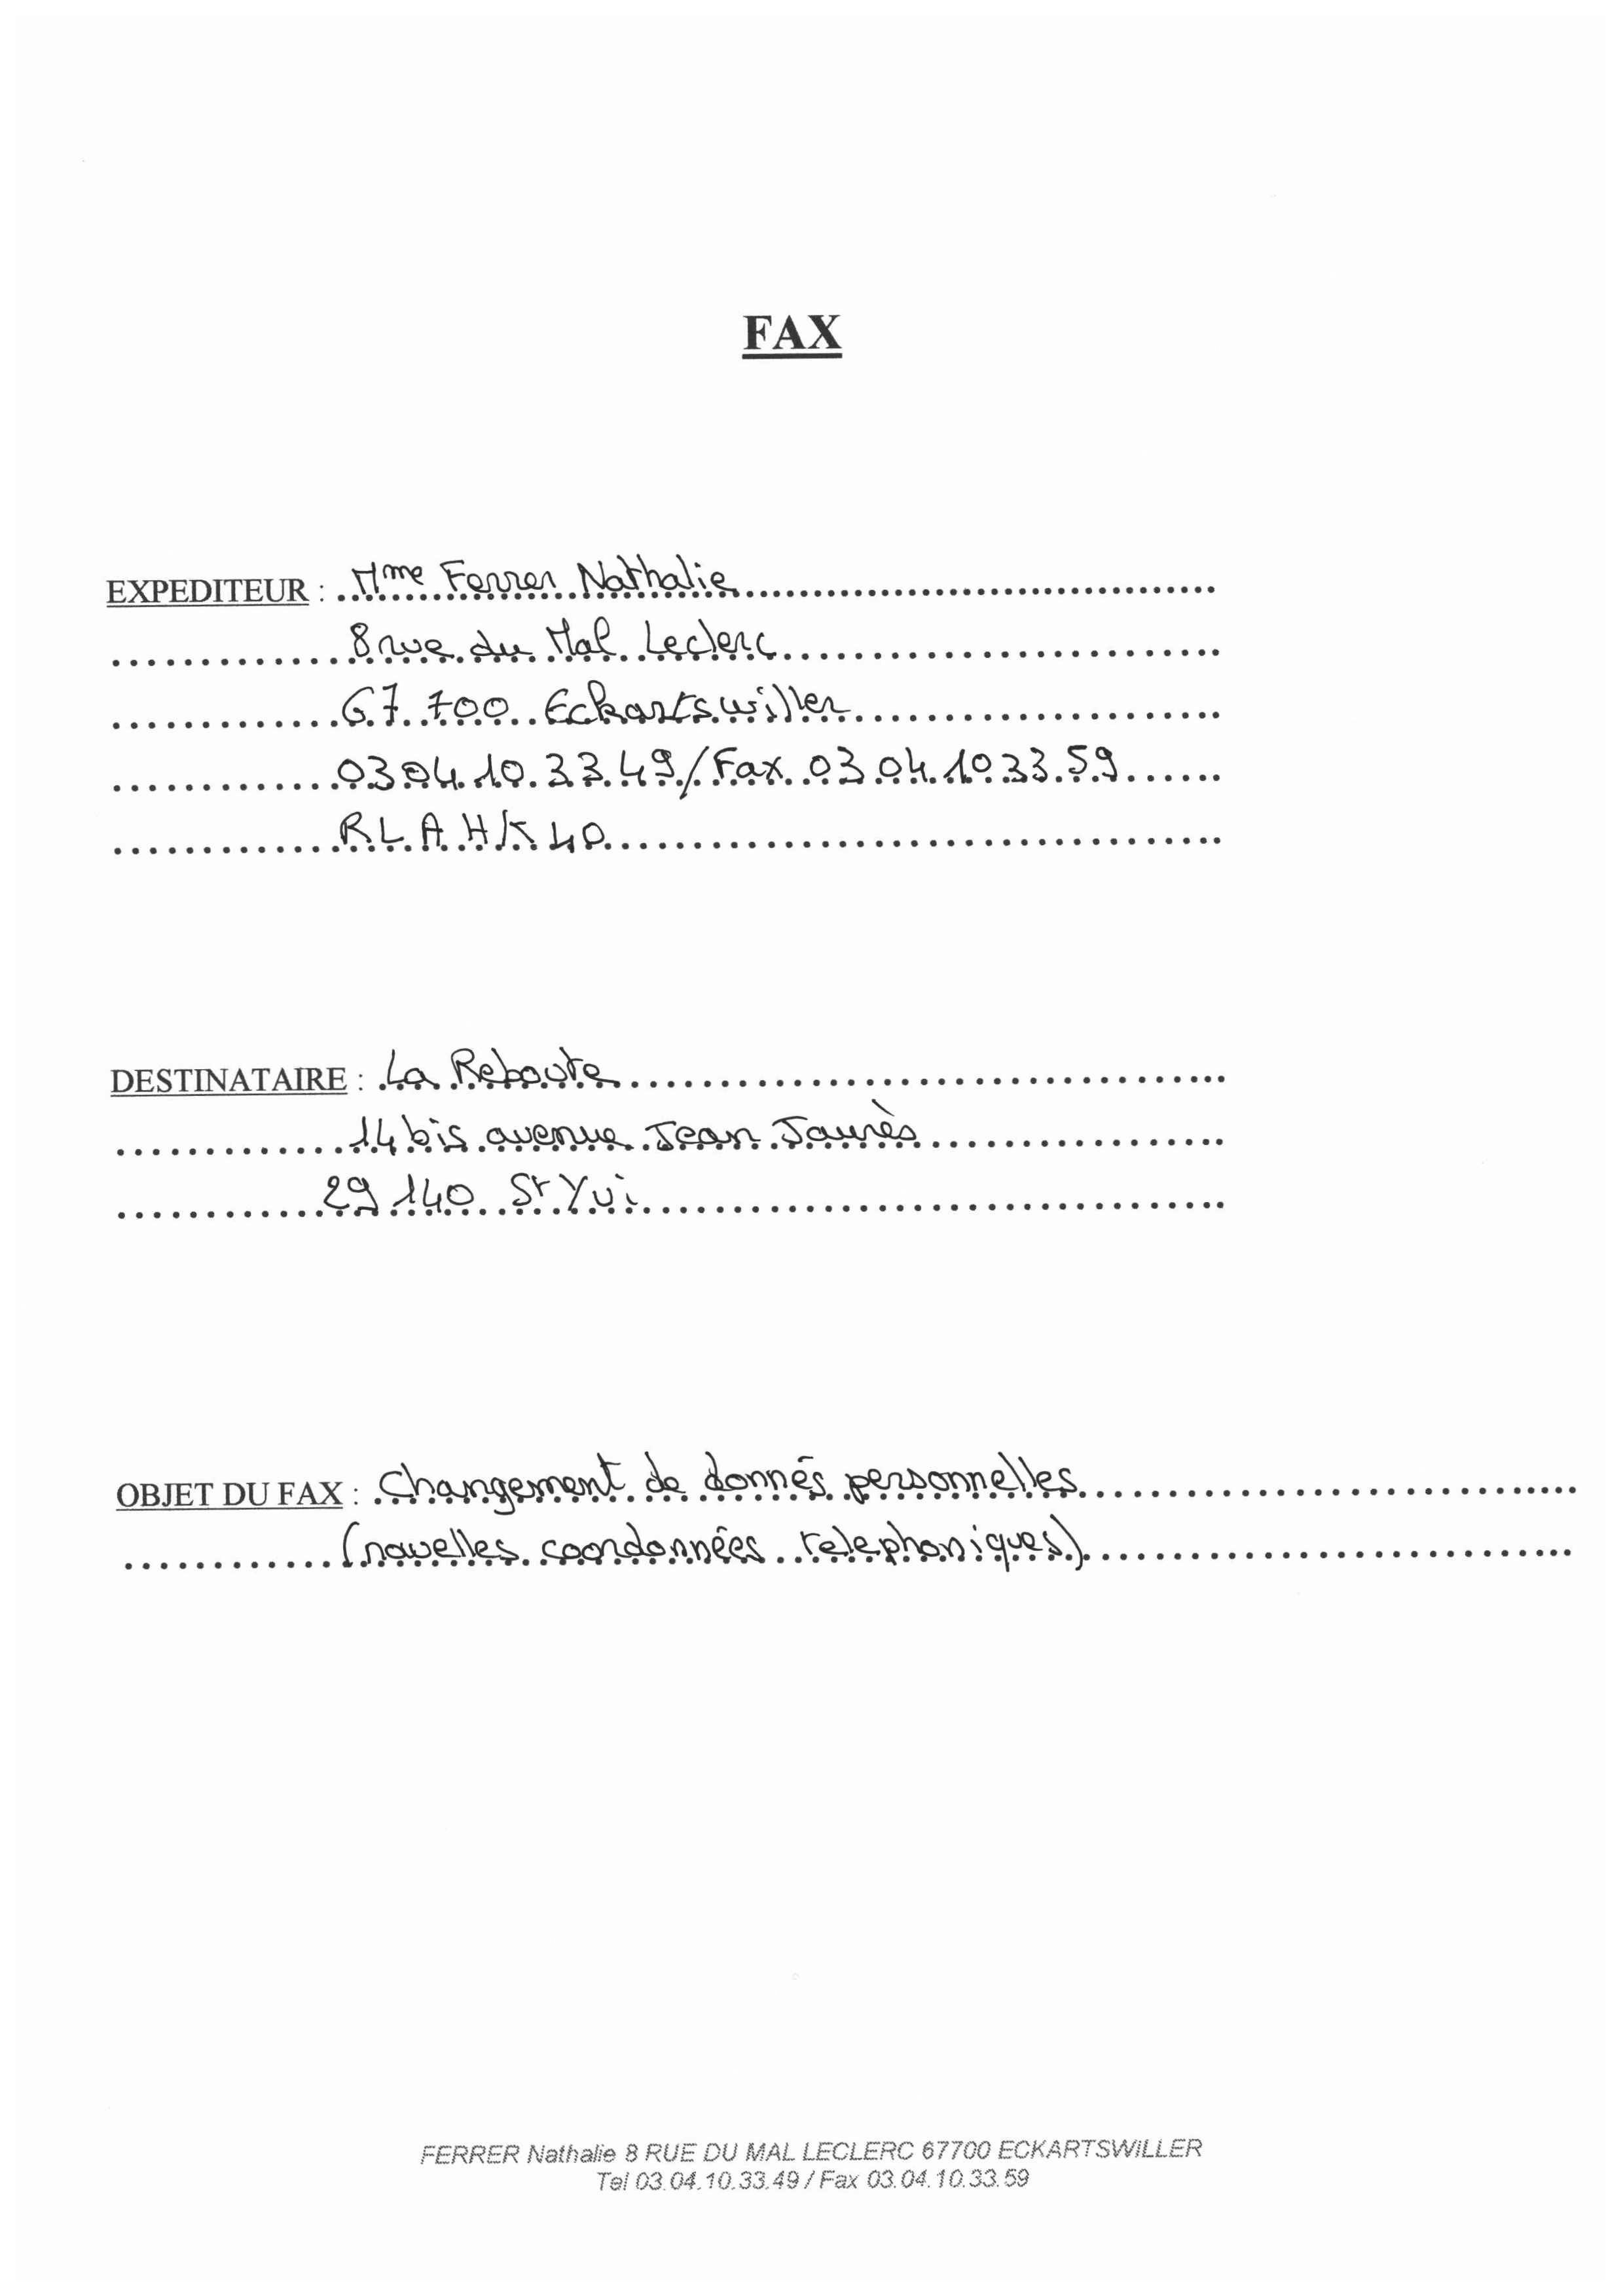 FAX
EXPEDITEUR : Mme Ferrer Nathalie
8 rue du Mal Leclerc
67 700 Eckartswiller
03 04 10 33 49 / Fax 03 04 10 33 59
RLAHK40
DESTINATAIRE : La Reboute
14 bis avenue Jean Jaurès
29 140 St Yvi
OBJET DU FAX : Changement de donnés personnelles
(nouvelles coordonnées telephoniques)
FERRER Nathalie 8 RUE DU MAL LECLERC 67700 ECKARTSWILLER
Tel 03.04.10.33.49 / Fax 03.04.10.33.59